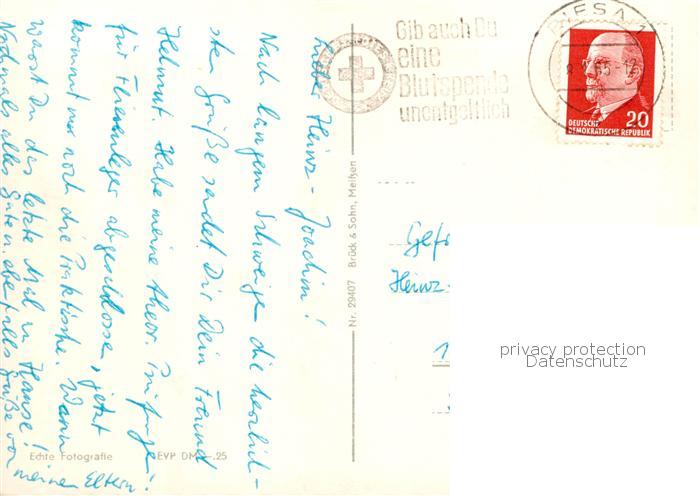 Lieber Heinz-Joachim!
Nach langem Schweigen die herzlich-
sten Grüße sendet Dir Dein Freund
Helmut. Habe meine theor. Prüfung
für Fliesenleger abgeschlossen, jetzt
kommt nur noch die Praktische. Wann
warst Du das letzte Mal zu Hause!
Nochmals alles Gute u. ebenfalls Grüße von
meinen Eltern!
Echte Fotografie
EVP DM -.25
Nr. 29407 Brück & Sohn, Meißen
Gib auch Du
eine
Blutspende
unentgeltlich
RIESA 1
DEUTSCHE
DEMOKRATISCHE REPUBLIK
20
Gefr
Heinz-
1
privacy protection
Datenschutz